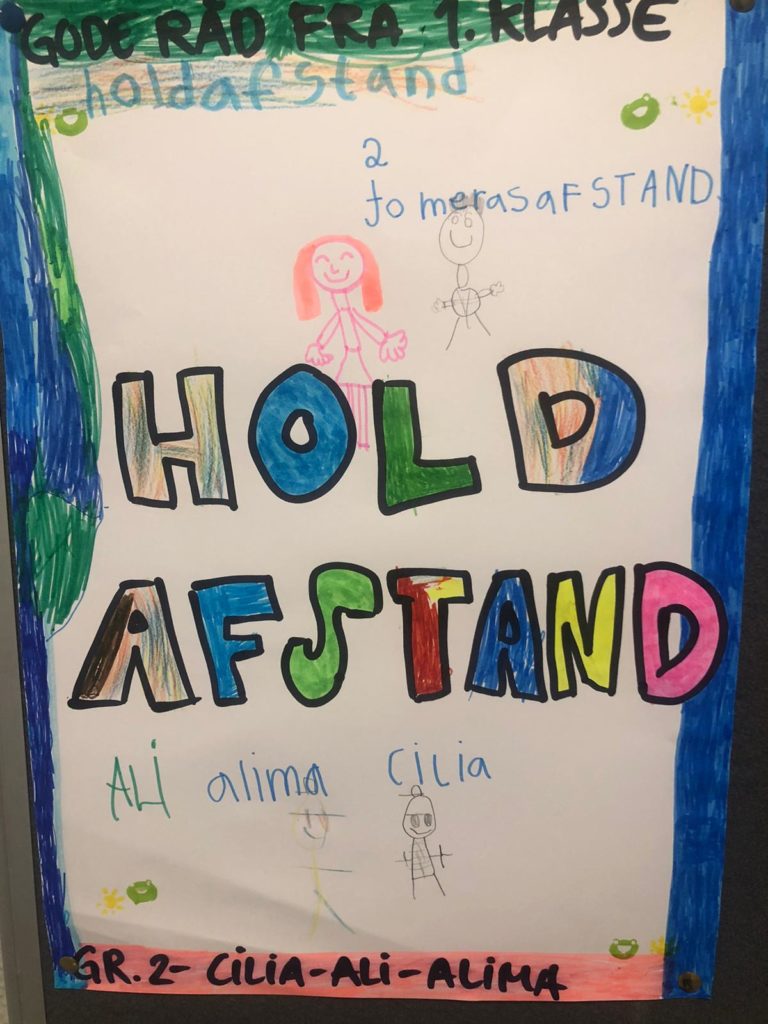 GODE RÅD FRA 1. KLASSE
holdafstand
2
to merasafSTAND
HOLD
AFSTAND
ALi alima CiLia
GR. 2- CiLIA-ALi-ALiMA